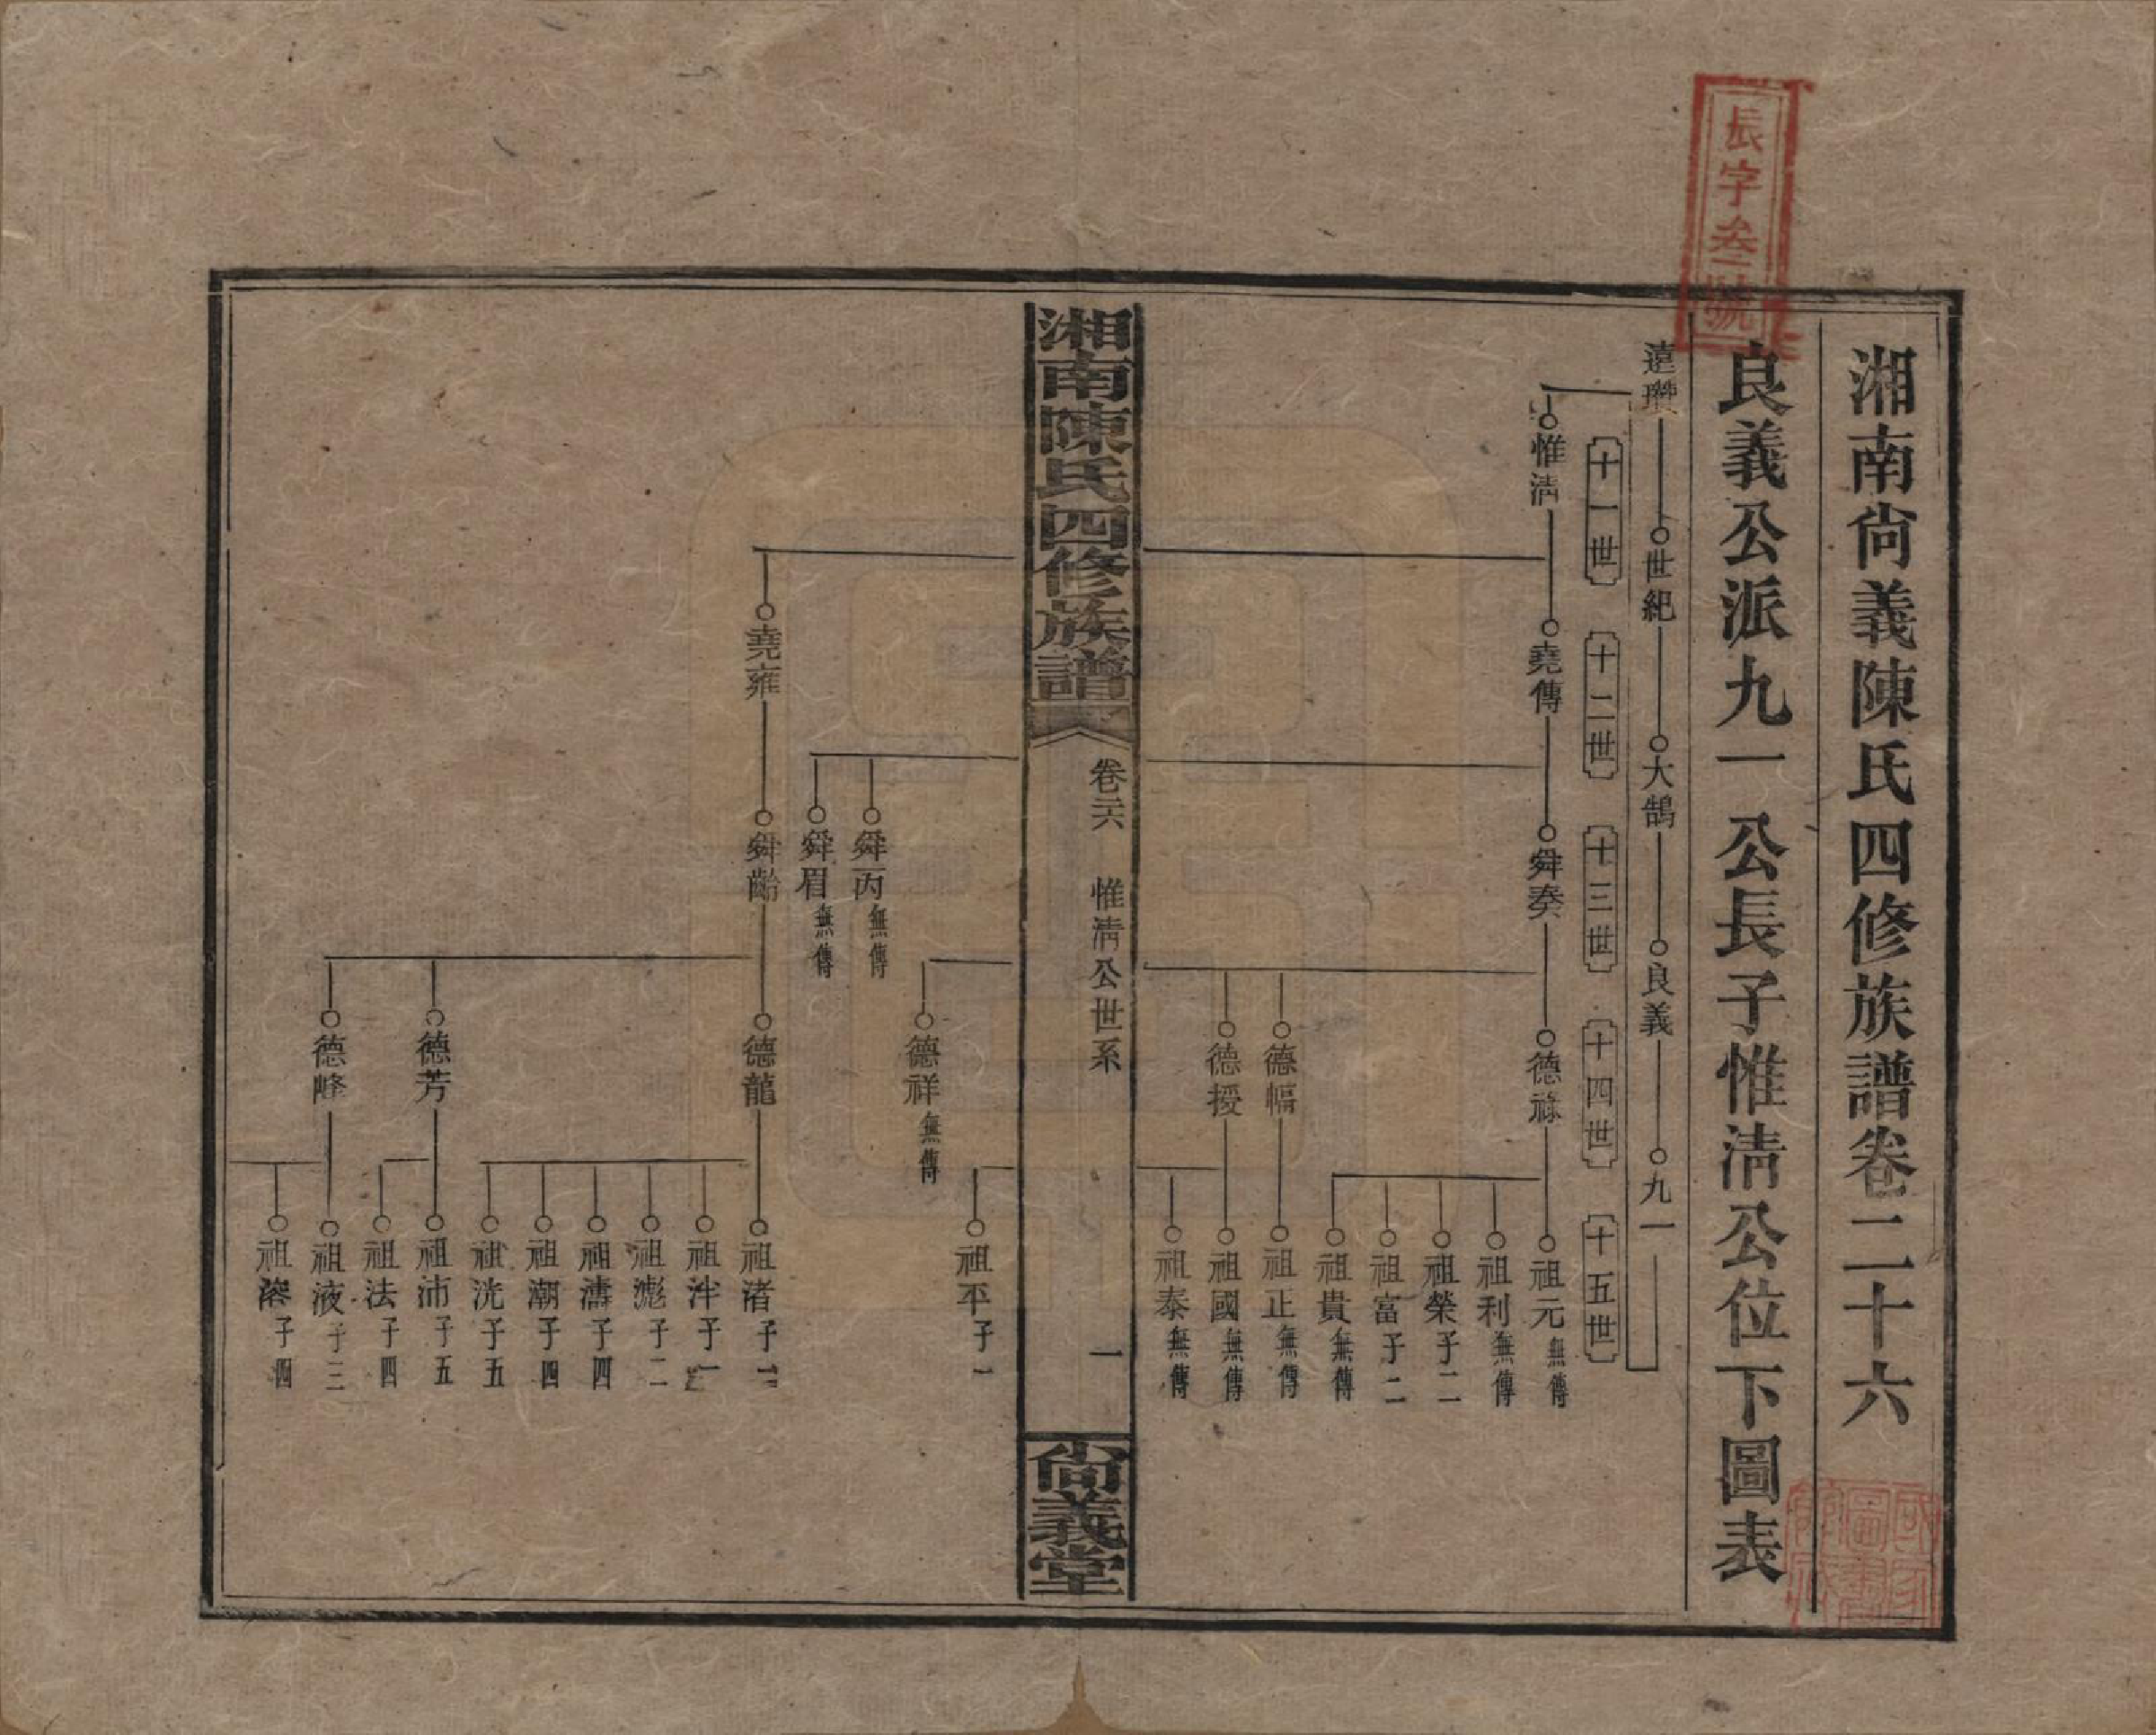 湘南尙義陳氏四修族譜卷二十六
良義公派九一公長子惟淸公位下圖表
辰字叁號
遠瓚
世紀
大鵠
良義
九一
十一世
十二世
十三世
十四世
十五世
惟淸
堯傳
舜奏
德祿
祖元無傳
祖利無傳
祖榮子二
祖富子二
祖貴無傳
德幅
祖正無傳
德授
祖國無傳
祖泰無傳
湘南陳氏四修族譜
卷二六
惟淸公世系
一
尙義堂
祖平子一
德祥無傳
舜丙無傳
舜眉無傳
堯雍
舜齡
德龍
祖渚子二
祖泮子一
祖滮子二
祖濤子四
祖潮子四
祖洸子五
德芳
祖沛子五
祖法子四
德峰
祖液子三
祖溶子四